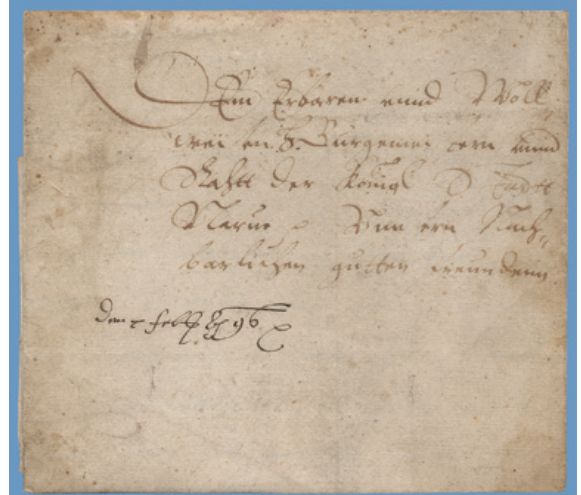 Den Erbaren unnd Woll
weisen H. Burgemeistern unnd
Rahtt der Königl Stadtt
Narue Unsern Nach-
barlichen gutten freundenn
den Feb 96